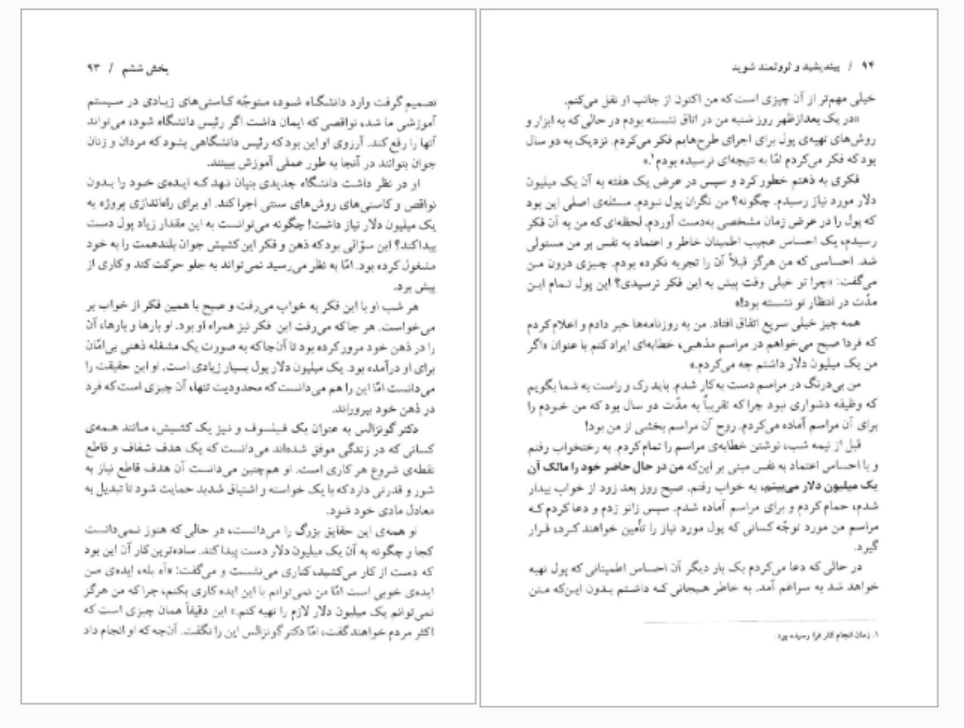 بخش ششم / ۹۳
تصمیم گرفت وارد دانشگاه شود، متوجّه کاستی‌های زیادی در سیستم
آموزشی ما شد، نواقصی که ایمان داشت اگر رئیس دانشگاه شود، می‌تواند
آنها را رفع کند. آرزوی او این بود که رئیس دانشگاهی بشود که مردان و زنان
جوان بتوانند در آنجا به طور عملی آموزش ببینند.
او در نظر داشت دانشگاه جدیدی بنیان نهد که ایده‌ی خود را بدون
نواقص و کاستی‌های روش‌های سنتی اجرا کند. او برای راه‌اندازی پروژه به
یک میلیون دلار نیاز داشت! چگونه می‌توانست به این مقدار زیاد پول دست
پیدا کند؟ این سؤالی بود که ذهن و فکر این کشیش جوان بلندهمت را به خود
مشغول کرده بود. امّا به نظر می‌رسید نمی‌تواند به جلو حرکت کند و کاری از
پیش برد.
هر شب او با این فکر به خواب می‌رفت و صبح با همین فکر از خواب بر
می‌خواست. هر جا که می‌رفت این فکر نیز همراه او بود. او بارها و بارها، آن
را در ذهن خود مرور کرده بود تا آن‌جا که به صورت یک مشغله ذهنی بی‌امّان
برای او درآمده بود. یک میلیون دلار پول بسیار زیادی است. او این حقیقت را
می‌دانست امّا این را هم می‌دانست که محدودیت تنها، آن چیزی است که فرد
در ذهن خود بپروراند.
دکتر گونزالس به عنوان یک فیلسوف و نیز یک کشیش، مانند همه‌ی
کسانی که در زندگی موفق شده‌اند می‌دانست که یک هدف شفاف و قاطع
نقطه‌ی شروع هر کاری است. او هم‌چنین می‌دانست آن هدف قاطع نیاز به
شور و قدرتی دارد که با یک خواسته و اشتیاق شدید حمایت شود تا تبدیل به
معادل مادی خود شود.
او همه‌ی این حقایق بزرگ را می‌دانست، در حالی که هنوز نمی‌دانست
کجا و چگونه به آن یک میلیون دلار دست پیدا کند. ساده‌ترین کار آن این بود
که دست از کار می‌کشید، کناری می‌نشست و می‌گفت: «آه بله، ایده‌ی من
ایده‌ی خوبی است امّا من نمی‌توانم با این ایده کاری بکنم، چرا که من هرگز
نمی‌توانم یک میلیون دلار لازم را تهیه کنم.» این دقیقاً همان چیزی است که
اکثر مردم خواهند گفت، امّا دکتر گونزالس این را نگفت. آن‌چه که او انجام داد
۹۴ / بیندیشید و ثروتمند شوید
خیلی مهم‌تر از آن چیزی است که من اکنون از جانب او نقل می‌کنم.
«در یک بعدازظهر روز شنبه من در اتاق نشسته بودم در حالی که به ابزار و
روش‌های تهیه‌ی پول برای اجرای طرح‌هایم فکر می‌کردم. نزدیک به دو سال
بود که فکر می‌کردم امّا به نتیجه‌ای نرسیده بودم.¹»
فکری به ذهنم خطور کرد و سپس در عرض یک هفته به آن یک میلیون
دلار مورد نیاز رسیدم. چگونه؟ من نگران پول نبودم. مسئله‌ی اصلی این بود
که پول را در عرض زمان مشخصی به‌دست آوردم. لحظه‌ای که من به آن فکر
رسیدم، یک احساس عجیب اطمینان خاطر و اعتماد به نفس بر من مستولی
شد. احساسی که من هرگز قبلاً آن را تجربه نکرده بودم. چیزی درون من
می‌گفت: «چرا تو خیلی وقت پیش به این فکر نرسیدی؟ این پول تمام این
مدّت در انتظار تو نشسته بود!»
همه چیز خیلی سریع اتفاق افتاد. من به روزنامه‌ها خبر دادم و اعلام کردم
که فردا صبح می‌خواهم در مراسم مذهبی، خطابه‌ای ایراد کنم با عنوان «اگر
من یک میلیون دلار داشتم چه می‌کردم.»
من بی‌درنگ در مراسم دست به‌کار شدم. باید رک و راست به شما بگویم
که وظیفه دشواری نبود چرا که تقریباً به مدّت دو سال بود که من خودم را
برای آن مراسم آماده می‌کردم. روح آن مراسم بخشی از من بود!
قبل از نیمه شب، نوشتن خطابه‌ی مراسم را تمام کردم. به رختخواب رفتم
و با احساس اعتماد به نفس مبنی بر این‌که من در حال حاضر خود را مالک آن
یک میلیون دلار می‌بینم، به خواب رفتم. صبح روز بعد زود از خواب بیدار
شدم، حمام کردم و برای مراسم آماده شدم. سپس زانو زدم و دعا کردم که
مراسم من مورد توجّه کسانی که پول مورد نیاز را تأمین خواهند کرد، قرار
گیرد.
در حالی که دعا می‌کردم یک بار دیگر آن احساس اطمینانی که پول تهیه
خواهد شد به سراغم آمد. به خاطر هیجانی که داشتم بدون این‌که متن
۱. زمان انجام کار فرا رسیده بود.